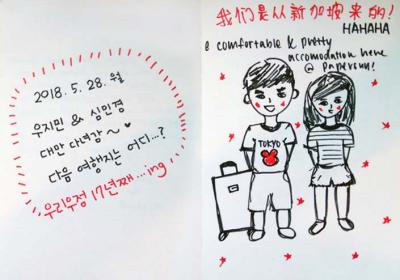 2018. 5. 28. 월
우지민 & 심민경
대만 다녀감~ ♥
다음 여행지는 어디...?
우리우정 17년째...ing
我们是从新加坡来的!
HAHAHA
a comfortable & pretty
accomodation here
@ Papersun!
TOKYO